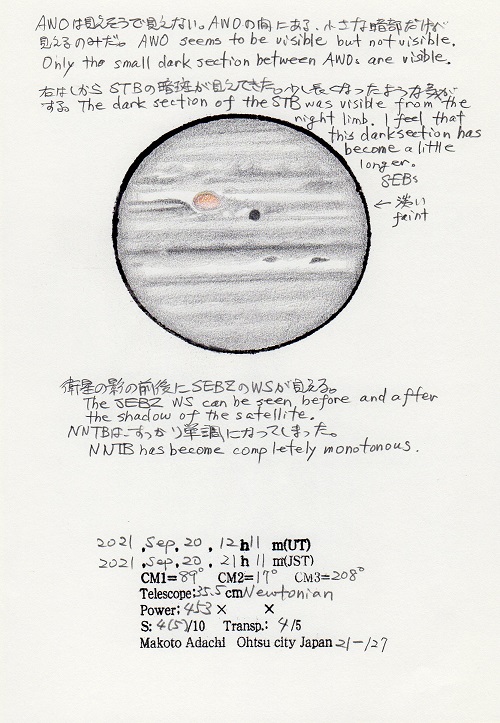 AWOは見えそうで見えない。AWOの間にある、小さな暗部だけが
見えるのみだ。 AWO seems to be visible but not visible.
Only the small dark section between AWOs are visible.
右はしから STBの暗斑が見えてきた。少し長くなったような気が
する。The dark section of the STB was visible from the
night limb. I feel that
this dark section has
become a little
longer.
SEBs
← 淡い
faint
衛星の影の前後にSEBZのWSが見える。
The SEBZ WS can be seen before and after
the shadow of the satellite.
NNTBは、すっかり単調になってしまった。
NNTB has become completely monotonous.
2021 , Sep. 20 , 12 h 11 m(UT)
2021 , Sep. 20 , 21 h 11 m(JST)
CM1= 89° CM2= 17° CM3= 208°
Telescope: 35.5 cm Newtonian
Power: 453 × ×
S: 4(5)/10 Transp.: 4/5
Makoto Adachi Ohtsu city Japan 21-127